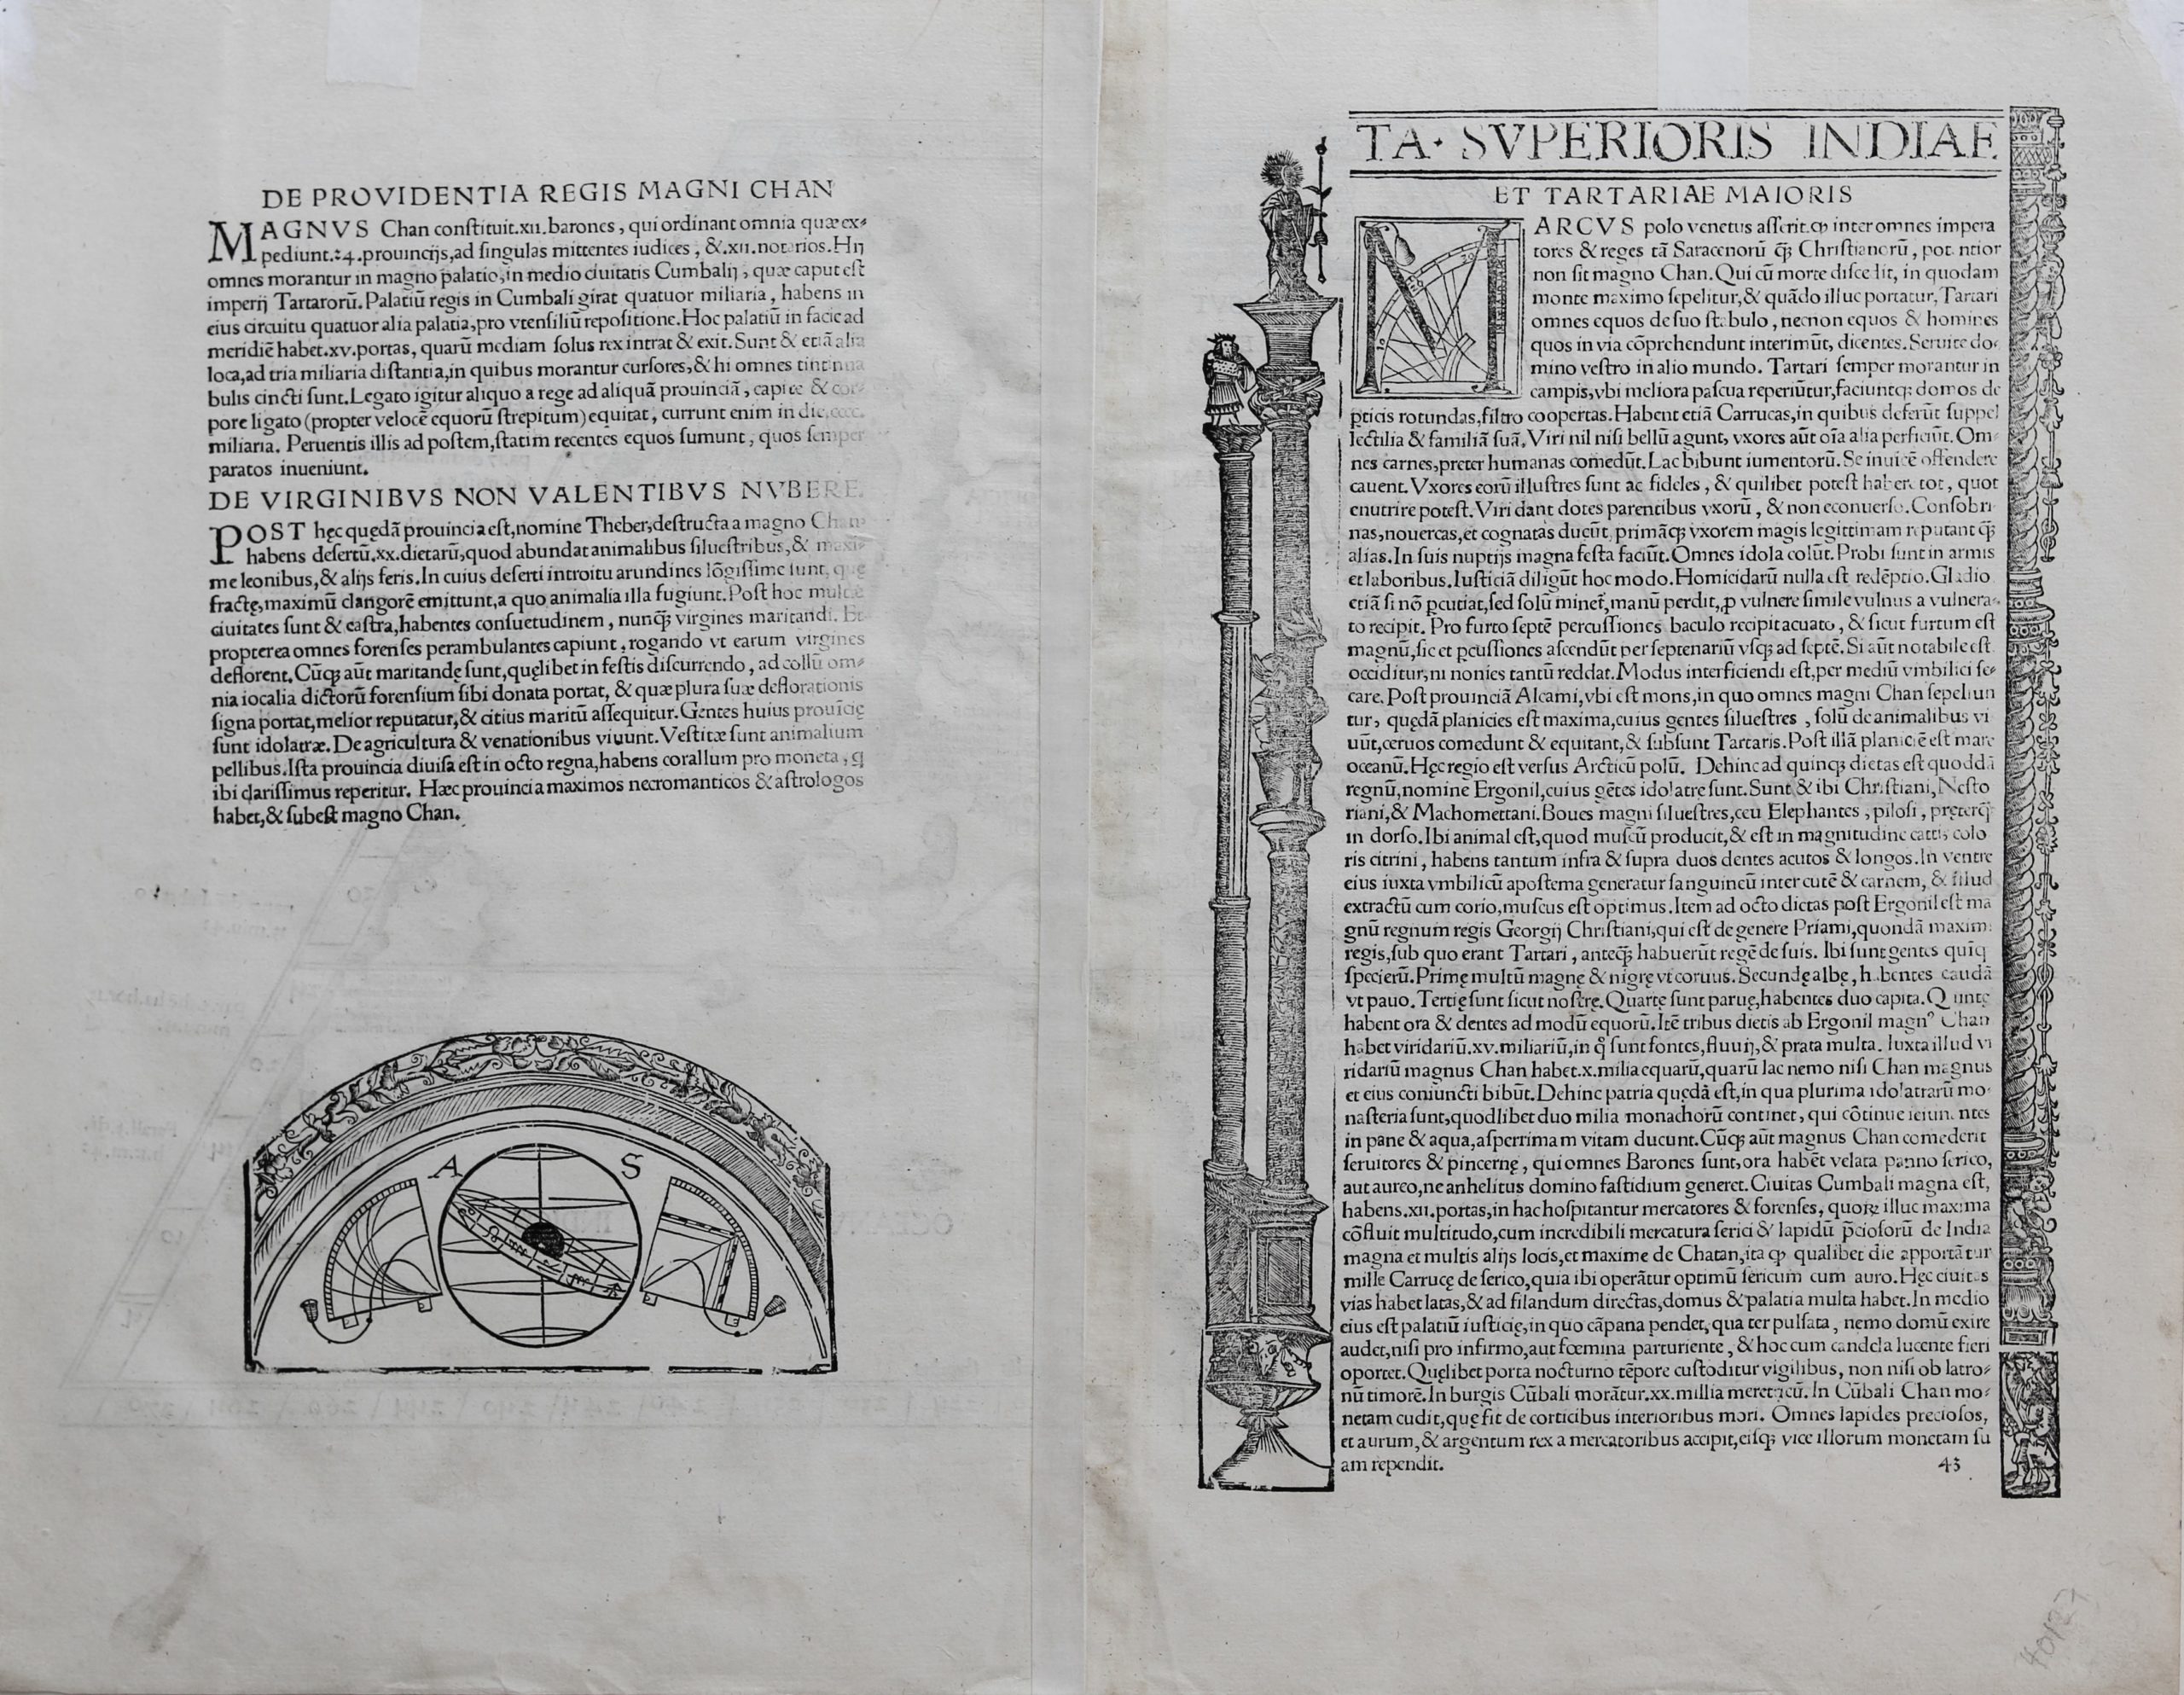 DE PROVIDENTIA REGIS MAGNI CHAN
MAGNVS Chan conſtituit.xii.barones, qui ordinant omnia quæ ex⸗
pediunt.24.prouincijs,ad ſingulas mittentes iudices, &.xii.notarios. Hij
omnes morantur in magno palatio,in medio ciuitatis Cumbalij, quæ caput eſt
imperij Tartarorū. Palatiū regis in Cumbali girat quatuor miliaria, habens in
eius circuitu quatuor alia palatia,pro vtenſiliū repoſitione.Hoc palatiū in facie ad
meridiē habet.xv.portas, quarū mediam ſolus rex intrat & exit. Sunt & etiā alia
loca,ad tria miliaria diſtantia,in quibus morantur curſores,& hi omnes tintinna
bulis cincti ſunt.Legato igitur aliquo a rege ad aliquā prouinciā, capite & cor⸗
pore ligato (propter velocē equorū ſtrepitum) equitat, currunt enim in die,cccc.
miliaria. Peruentis illis ad poſtem,ſtatim recentes equos ſumunt, quos ſemper
paratos inueniunt.
DE VIRGINIBVS NON VALENTIBVS NVBERE.
POST hęc quędā prouincia eſt,nomine Theber,deſtructa a magno Chan,
habens deſertū.xx.dietarū,quod abundat animalibus ſilueſtribus,& maxi⸗
me leonibus,& alijs feris.In cuius deſerti introitu arundines lōgiſſime ſunt, que
fractę,maximū clangorē emittunt,a quo animalia illa fugiunt.Poſt hoc multæ
ciuitates ſunt & caſtra,habentes conſuetudinem, nunq̄ꝫ virgines maritandi. Et
propterea omnes forenſes perambulantes capiunt, rogando vt earum virgines
deflorent.Cūqꝫ aūt maritandę ſunt,quęlibet in feſtis diſcurrendo, ad collū om⸗
nia iocalia dictorū forenſium ſibi donata portat, & quæ plura ſuæ deflorationis
ſigna portat,melior reputatur,& citius maritū aſſequitur. Gentes huius prouīcię
ſunt idolatræ. De agricultura & venationibus viuunt.Veſtitæ ſunt animalium
pellibus.Iſta prouincia diuiſa eſt in octo regna,habens corallum pro moneta, q
ibi clariſſimus reperitur. Hæc prouincia maximos necromanticos & aſtrologos
habet,& ſubeſt magno Chan.
A S
TA· SVPERIORIS INDIAE
ET TARTARIAE MAIORIS
MARCVS polo venetus aſſerit.ꝙ inter omnes impera
tores & reges tā Saracenorū q̄ꝫ Chriſtianorū, potentior
non ſit magno Chan. Qui cū morte diſcedit, in quodam
monte maximo ſepelitur,& quādo illuc portatur, Tartari
omnes equos de ſuo ſtabulo, necnon equos & homines
quos in via cōprehendunt interimūt, dicentes. Seruite do⸗
mino veſtro in alio mundo. Tartari ſemper morantur in
campis,vbi meliora paſcua reperiūtur,faciuntqꝫ domos de
pticis rotundas,filtro coopertas. Habent etiā Carrucas,in quibus deferūt ſuppel
lectilia & familiā ſuā. Viri nil niſi bellū agunt, vxores aūt oīa alia perficiūt. Om⸗
nes carnes,preter humanas comedūt. Lac bibunt iumentorū. Se inuicē offendere
cauent. Vxores eorū illuſtres ſunt ac fideles, & quilibet poteſt habere tot, quot
enutrire poteſt. Viri dant dotes parentibus vxorū, & non econuerſo. Conſobri⸗
nas,nouercas,et cognatas ducūt, primāqꝫ vxorem magis legittimam reputant q̄ꝫ
alias. In ſuis nuptijs magna feſta faciūt. Omnes idola colūt. Probi ſunt in armis
et laboribus. Iuſticiā diligūt hoc modo. Homicidarū nulla eſt redēptio. Gladio
etiā ſi nō pcutiat,ſed ſolū minet̄,manū perdit,ꝓ vulnere ſimile vulnus a vulnera⸗
to recipit. Pro furto ſeptē percuſſiones baculo recipit acuato, & ſicut furtum eſt
magnū,ſic et pcuſſiones aſcendūt per ſeptenariū vſqꝫ ad ſeptē. Si aūt notabile eſt
occiditur,ni nonies tantū reddat. Modus interficiendi eſt,per mediū vmbilici ſe⸗
care. Poſt prouinciā Alcami,vbi eſt mons,in quo omnes magni Chan ſepeliun
tur, quędā planicies eſt maxima,cuius gentes ſilueſtres, ſolū de animalibus vi
uūt,ceruos comedunt & equitant,& ſubſunt Tartaris. Poſt illā planiciē eſt mare
oceanū. Hęc regio eſt verſus Arcticū polū. Dehinc ad quinqꝫ dietas eſt quoddā
regnū,nomine Ergonil,cuius gētes idolatre ſunt. Sunt & ibi Chriſtiani, Neſto
riani,& Machomettani. Boues magni ſilueſtres,ceu Elephantes, piloſi, pręterq̄ꝫ
in dorſo. Ibi animal eſt,quod muſcū producit,& eſt in magnitudine catti, colo
ris citrini, habens tantum infra & ſupra duos dentes acutos & longos. In ventre
eius iuxta vmbilicū apoſtema generatur ſanguineū inter cutē & carnem, & illud
extractū cum corio,muſcus eſt optimus. Item ad octo dietas poſt Ergonil eſt ma
gnū regnum regis Georgij Chriſtiani,qui eſt de genere Priami,quondā maximi
regis,ſub quo erant Tartari, anteq̄ꝫ habuerūt regē de ſuis. Ibi ſunt gentes quīq
ſpecierū. Primę multū magnę & nigrę vt coruus. Secundę albę, habentes caudā
vt pauo. Tertię ſunt ſicut noſtrę. Quartę ſunt paruę,habentes duo capita. Quintę
habent ora & dentes ad modū equorū. Itē tribus dietis ab Ergonil magnꝰ Chan
habet viridariū.xv.miliariū,in q̊ ſunt fontes,fluuij,& prata multa. Iuxta illud vi
ridariū magnus Chan habet.x.milia equarū,quarū lac nemo niſi Chan magnus
et eius coniuncti bibūt. Dehinc patria quędā eſt,in qua plurima idolatrarū mo⸗
naſteria ſunt,quodlibet duo milia monachorū continet, qui cōtinue ieiunantes
in pane & aqua,aſperrimam vitam ducunt. Cūqꝫ aūt magnus Chan comederit
ſeruitores & pincernę, qui omnes Barones ſunt,ora habēt velata panno ſerico,
aut aureo,ne anhelitus domino faſtidium generet. Ciuitas Cumbali magna eſt,
habens.xii.portas,in hac hoſpitantur mercatores & forenſes, quoꝝ illuc maxima
cōfluit multitudo,cum incredibili mercatura ſerici & lapidū p̄cioſorū de India
magna et multis alijs locis,et maxime de Chatan,ita ꝙ qualibet die apportātur
mille Carrucę de ſerico,quia ibi operātur optimū ſericum cum auro. Hęc ciuitas
vias habet latas,& ad filandum directas,domus & palatia multa habet. In medio
eius eſt palatiū iuſticię,in quo cāpana pendet, qua ter pulſata, nemo domū exire
audet,niſi pro infirmo,aut fœmina parturiente, & hoc cum candela lucente fieri
oportet. Quęlibet porta nocturno tēpore cuſtoditur vigilibus, non niſi ob latro⸗
nū timorē. In burgis Cūbali morātur.xx.millia meretricū. In Cūbali Chan mo⸗
netam cudit,quę fit de corticibus interioribus mori. Omnes lapides precioſos,
et aurum,& argentum rex a mercatoribus accipit,eiſqꝫ vice illorum monetam ſu
am rependit.
43
40127